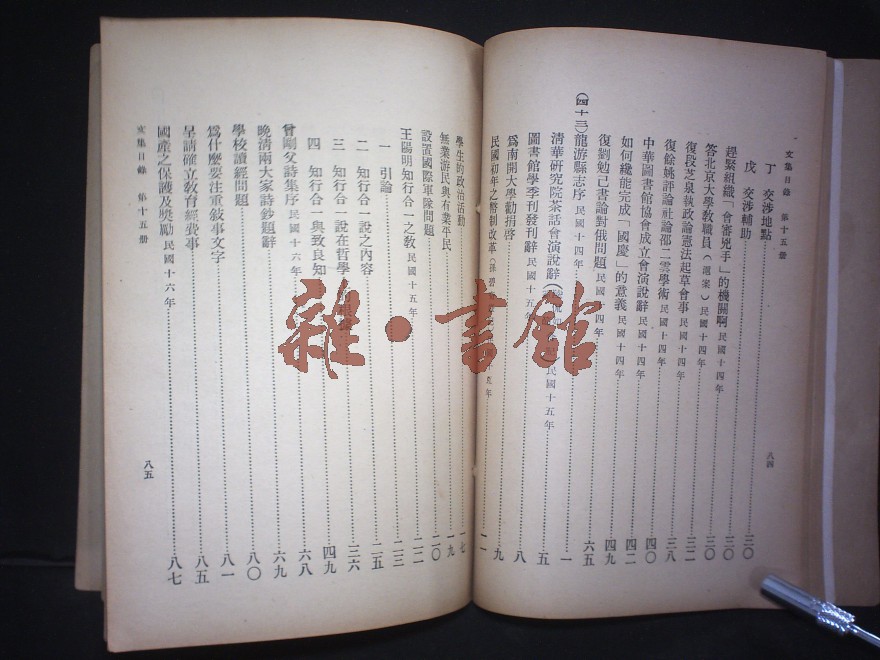 文集目錄 第十五册
丁 交涉地點……三〇
戊 交涉輔助……三〇
趕緊組織「會審兇手」的機關啊 民國十四年……三〇
答北京大學教職員（滬案）民國十四年……三〇
復段芝泉執政論憲法起草會事 民國十四年……三二
復餘姚評論社論邵二雲學術 民國十四年……三八
中華圖書館協會成立會演說辭 民國十四年……四〇
如何纔能完成「國慶」的意義 民國十四年……四二
復劉勉己書論對俄問題 民國十四年……四九
（四十三）龍游縣志序 民國十四年……六五
清華研究院茶話會演說辭（ 民國十五年……一
圖書館學季刊發刊辭 民國十五年……五
爲南開大學勸捐啓……八
民國初年之幣制改革……九
八四
學生的政治活動……一七
無業游民與有業平民……一九
設置國際軍隊問題……二〇
王陽明知行合一之教 民國十五年……二二
一 引論……二三
二 知行合一說之內容……二五
三 知行合一說在哲學……三六
四 知行合一與致良知……四九
曾剛父詩集序 民國十六年……六八
晚清兩大家詩鈔題辭……六九
學校讀經問題……八〇
爲什麼要注重敍事文字……八一
早請確立教育經費事……八五
國產之保護及奬勵 民國十六年……八七
文集目錄 第十五册
八五
雜·書館